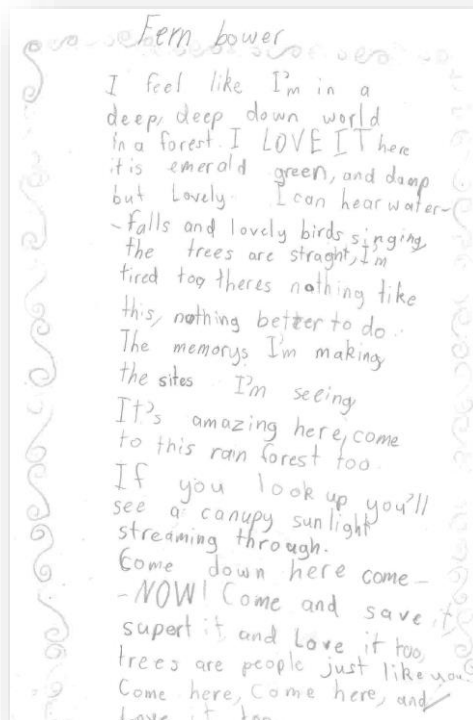 Fern bower
I feel like I'm in a
deep, deep down world
in a forest. I LOVE IT here
it is emerald green, and damp
but Lovely. I can hear water-
-falls and lovely birds singing,
the trees are straght, I'm
tired too, theres nothing like
this, nothing better to do.
The memorys I'm making
the sites I'm seeing
It's amazing here, come
to this rain forest too.
If you look up you'll
see a canupy sun light
streaming through.
Come down here come-
-NOW! Come and save it
supert it and Love it too,
trees are people just like you
Come here, Come here, and
Love it too